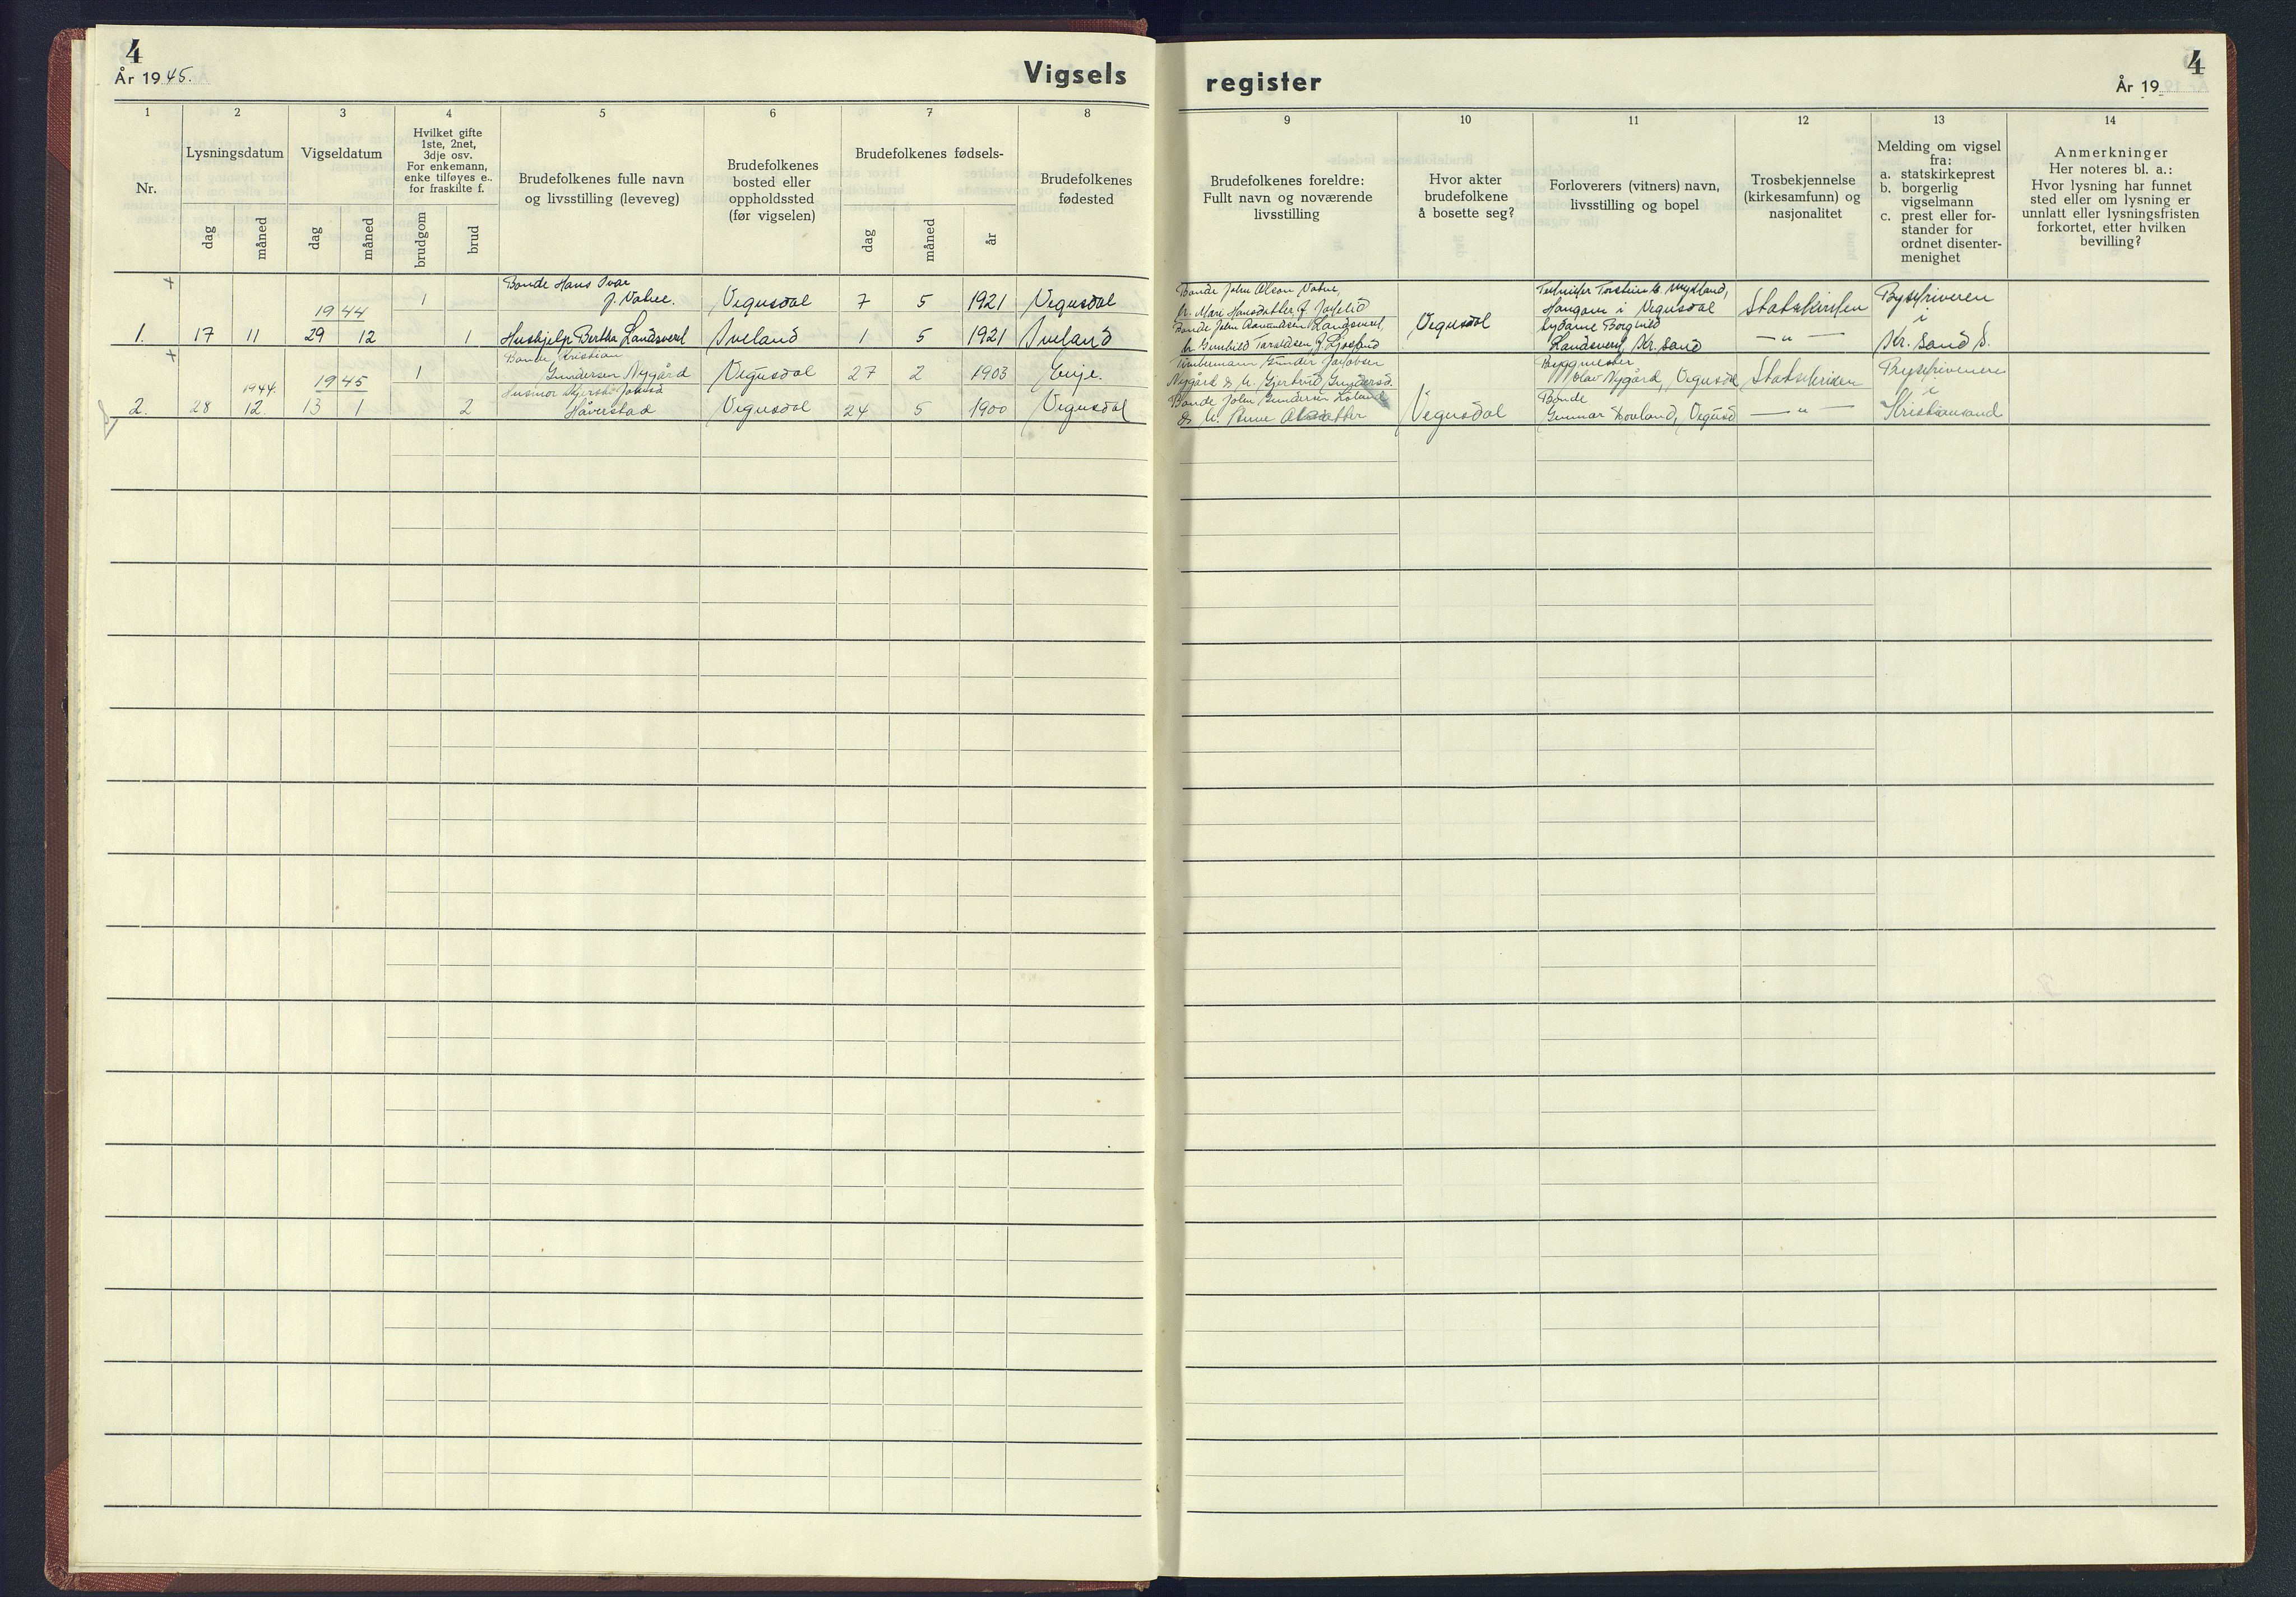 4
År 1945.
Vigsels
register
År 19
4
1
2
3
4
5
6
7
8
9
10
11
12
13
14
Nr.
Lysningsdatum
dag
måned
Vigseldatum
dag
måned
Hvilket gifte
1ste, 2net,
3dje osv.
For enkemann,
enke tilføyes e.,
for fraskilte f.
brudgom
brud
Brudefolkenes fulle navn
og livsstilling (leveveg)
Brudefolkenes
bosted eller
oppholdssted
(før vigselen)
Brudefolkenes fødsels-
dag
måned
år
Brudefolkenes
fødested
Brudefolkenes foreldre:
Fullt navn og noværende
livsstilling
Hvor akter
brudefolkene
å bosette seg?
Forloverers (vitners) navn,
livsstilling og bopel
Trosbekjennelse
(kirkesamfunn) og
nasjonalitet
Melding om vigsel
fra:
a. statskirkeprest
b. borgerlig
vigselmann
c. prest eller for-
stander for
ordnet disenter-
menighet
Anmerkninger
Her noteres bl. a.:
Hvor lysning har funnet
sted eller om lysning er
unnlatt eller lysningsfristen
forkortet, etter hvilken
bevilling?
+
1944
1
Bonde Hans Ivar
J. Vatne.
Vegusdal
7 5 1921
Vegusdal
1. 17 11 29 12
1
Hushjelp Bertha Landsverk
Iveland
1 5 1921
Iveland
Bonde John Olson Vatne,
Mari Hansdatter f.
Bonde John Aanundsen Landsverk,
Gunhild Taraldsen f.
Vegusdal
Torstein Mykland,
Haugane i Vegusdal
Sydame Borghild
Landsverk, Kr. Sand
Statskirken
— " —
Byskriveren
i
Kr. Sand S.
+
1945
1
Bonde Kristian
Gundersen Nygård
Vegusdal
27 2 1903
Evje.
1944.
2. 28 12. 13 1
2
Husmor
Håverstad
Vegusdal
24 5 1900
Vegusdal
Tømmermann Gunder Jakobsen
Nygård & h. Gjertrud Gundersd.
Bonde John Gundersen
& h. Anne
Vegusdal
Byggmester
Olav Nygård, Vegusdal
Bonde
Gunnar Hovland, Vegusd
Statskirken
— " —
Byskriveren
i
Kristiansand